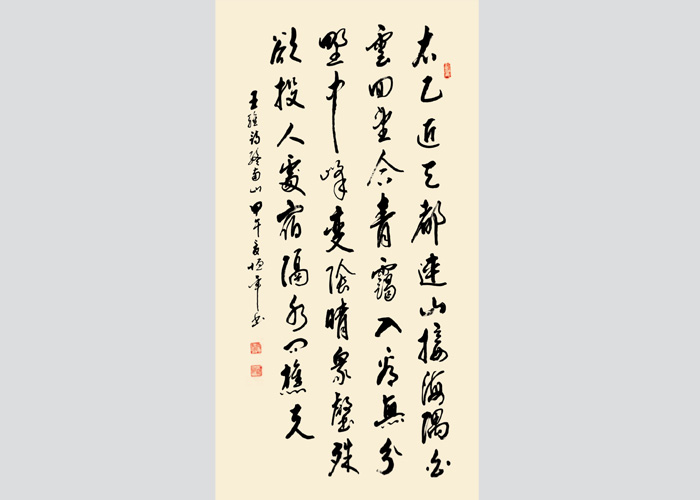 太乙近天都連山接海隅白
雲回望合青靄入看無分
野中峰變陰晴衆壑殊
欲投人處宿隔水问樵夫
王維詩終南山甲午夏恒年书